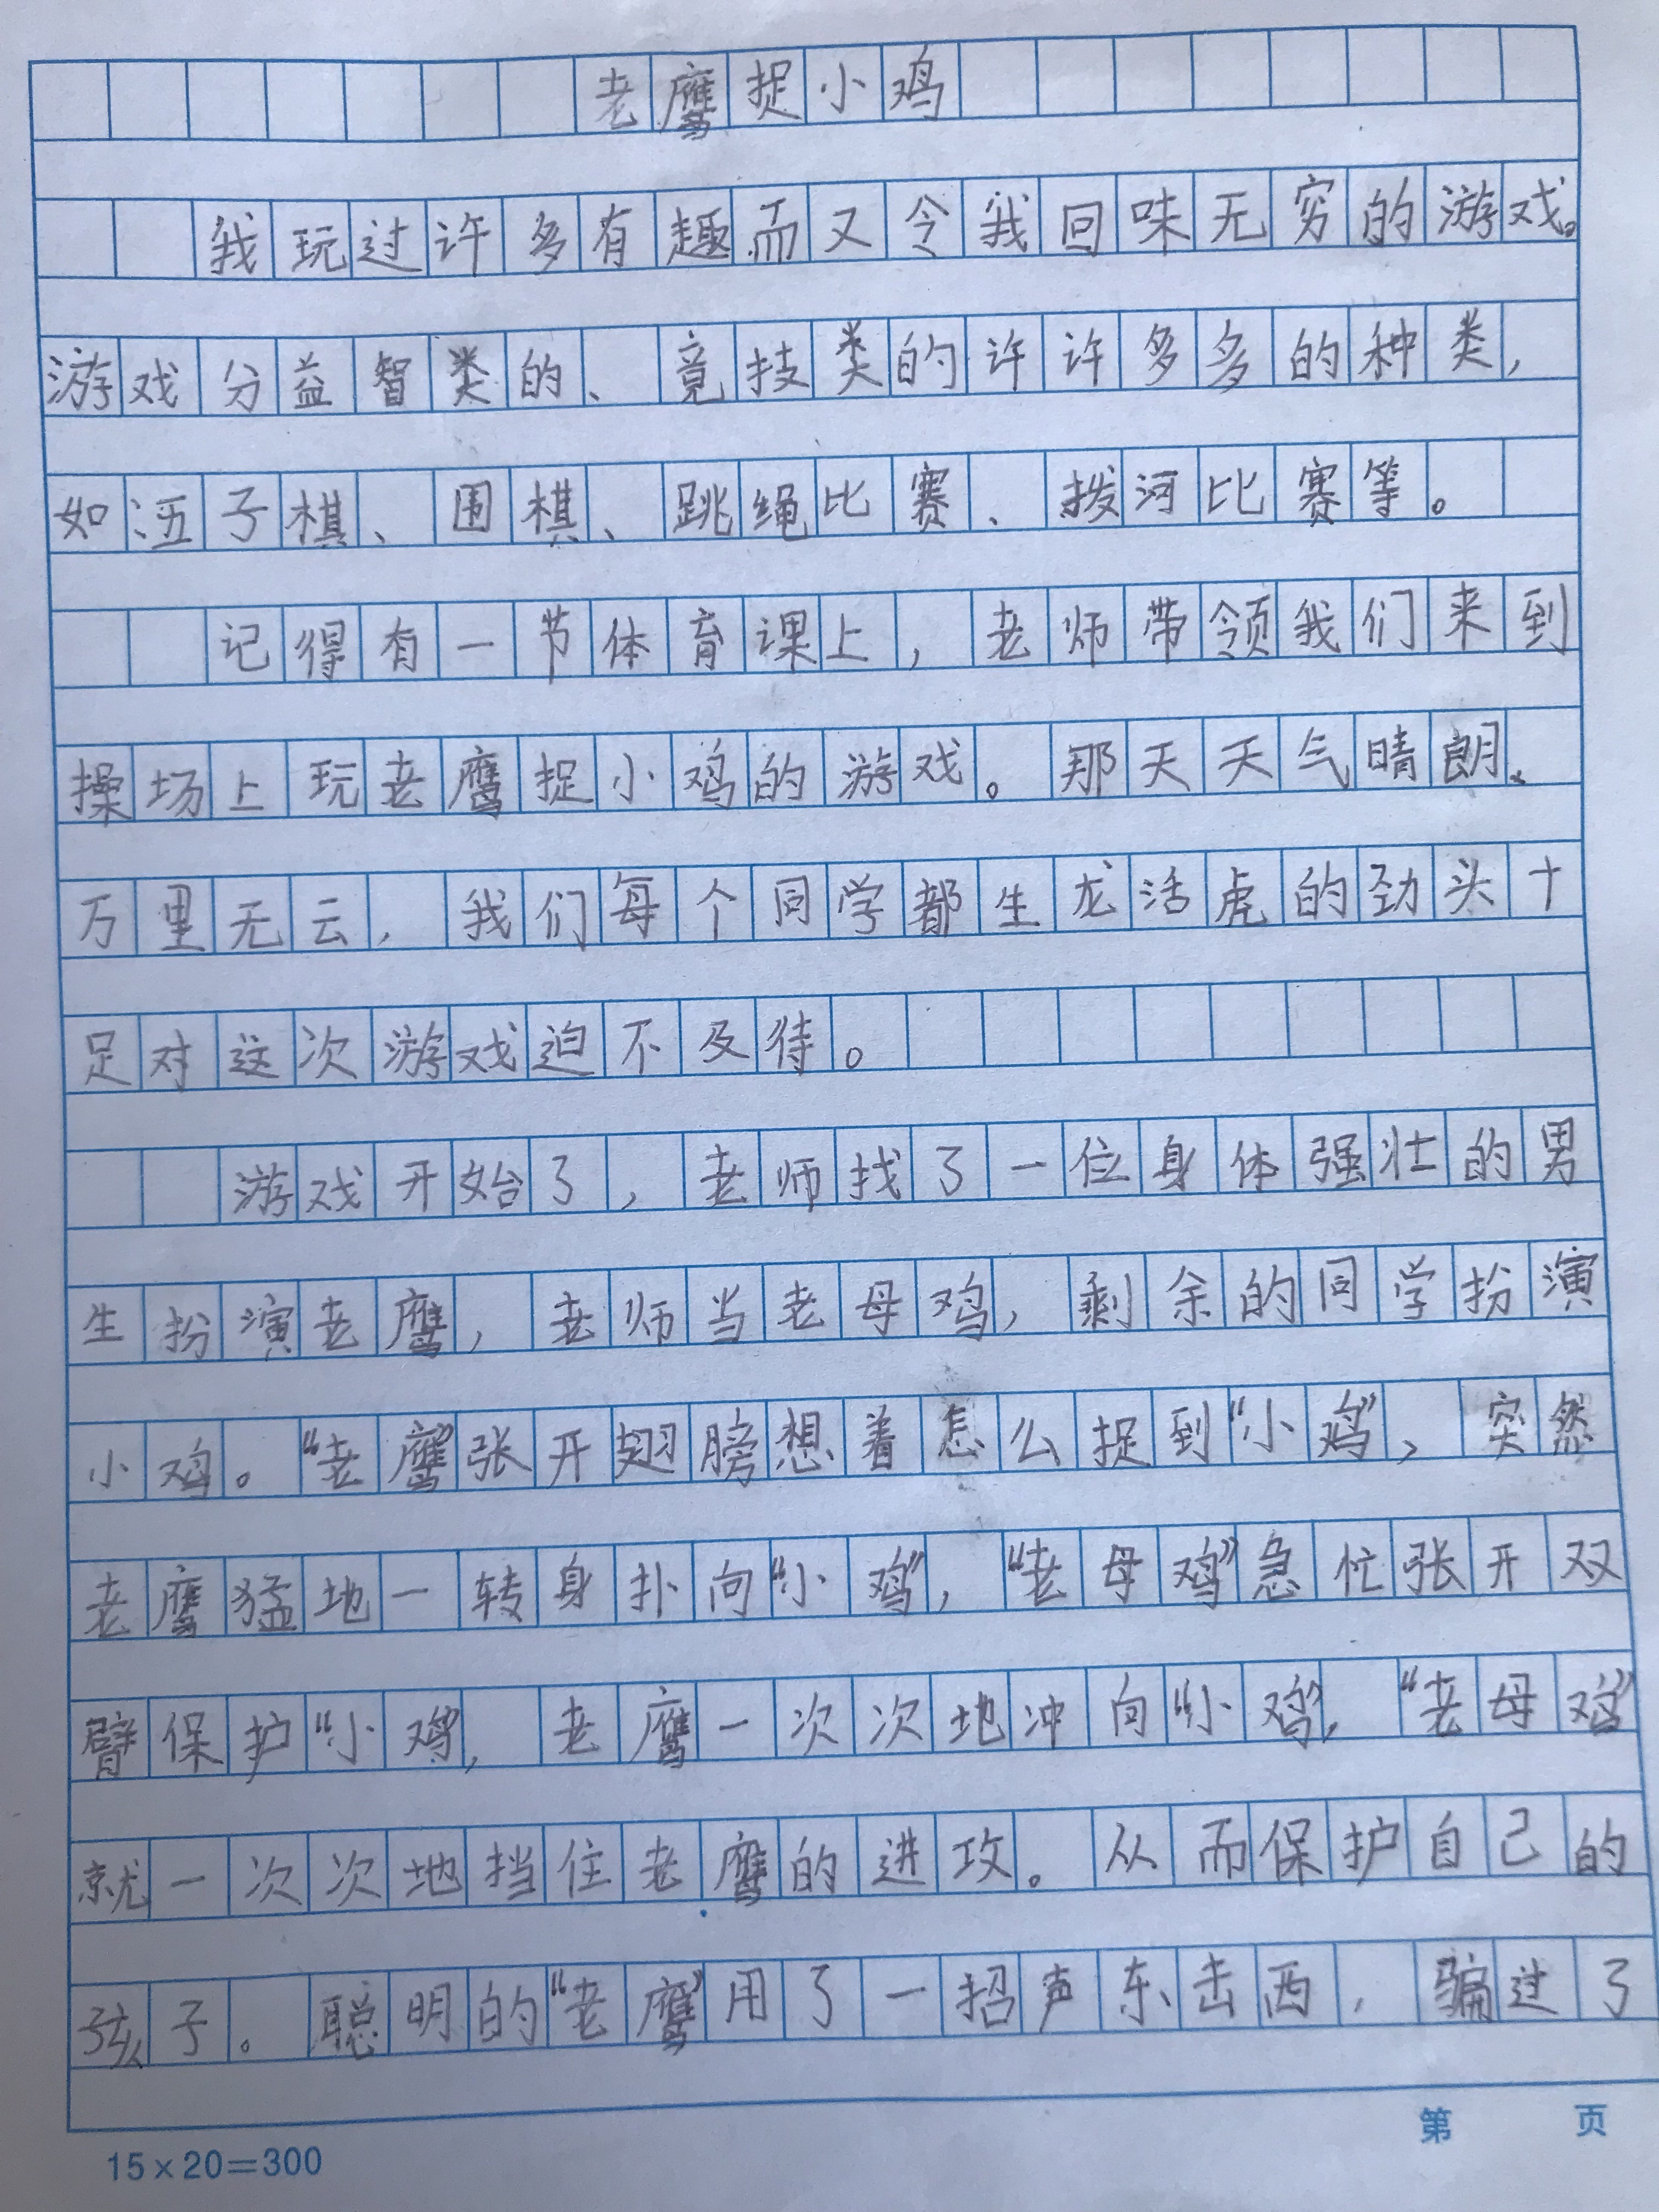 老鹰捉小鸡
我玩过许多有趣而又令我回味无穷的游戏。
游戏分益智类的、竟技类的许许多多的种类，
如五子棋、围棋、跳绳比赛、拨河比赛等。
记得有一节体育课上，老师带领我们来到
操场上玩老鹰捉小鸡的游戏。那天天气晴朗、
万里无云，我们每个同学都生龙活虎的劲头十
足对这次游戏迫不及待。
游戏开始了，老师找了一位身体强壮的男
生扮演老鹰，老师当老母鸡，剩余的同学扮演
小鸡。“老鹰”张开翅膀想着怎么捉到“小鸡”，突然
老鹰猛地一转身扑向“小鸡”，“老母鸡”急忙张开双
臂保护“小鸡”，老鹰一次次地冲向“小鸡”，“老母鸡”
就一次次地挡住老鹰的进攻。从而保护自己的
孩子。聪明的“老鹰”用了一招声东击西，骗过了
第 页
15×20=300